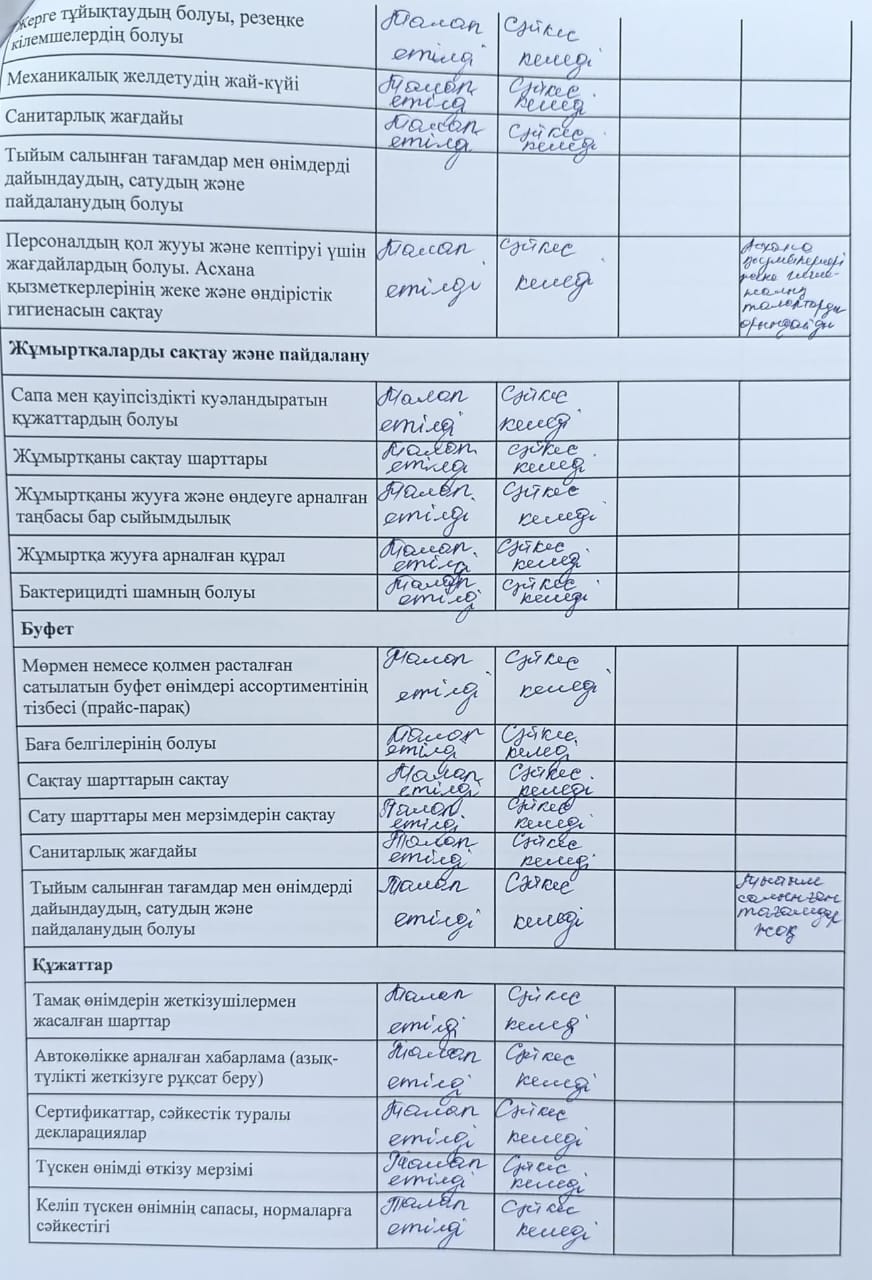 Жерге тұйықтаудың болуы, резеңке
кілемшелердің болуы
Талап Сәйкес
етілді келеді
Механикалық желдетудің жай-күйі
Талап Сәйкес
етілді келеді
Санитарлық жағдайы
Талап Сәйкес
етілді келеді
Тыйым салынған тағамдар мен өнімдерді
дайындаудың, сатудың және
пайдаланудың болуы
Персоналдың қол жууы және кептіруі үшін
жағдайлардың болуы. Асхана
қызметкерлерінің жеке және өндірістік
гигиенасын сақтау
Талап Сәйкес
етілді келеді
Асхана
жұмыскерлері
жеке гигие-
налық
талаптарды
орындайды
Жұмыртқаларды сақтау және пайдалану
Сапа мен қауіпсіздікті куәландыратын
құжаттардың болуы
Талап Сәйкес
етілді келеді
Жұмыртқаны сақтау шарттары
Талап Сәйкес
етілді келеді
Жұмыртқаны жууға және өңдеуге арналған
таңбасы бар сыйымдылық
Талап Сәйкес
етілді келеді
Жұмыртқа жууға арналған құрал
Талап Сәйкес
етілді келеді
Бактерицидті шамның болуы
Талап Сәйкес
етілді келеді
Буфет
Мөрмен немесе қолмен расталған
сатылатын буфет өнімдері ассортиментінің
тізбесі (прайс-парақ)
Талап Сәйкес
етілді келеді
Баға белгілерінің болуы
Талап Сәйкес
етілді келеді
Сақтау шарттарын сақтау
Талап Сәйкес
етілді келеді
Сату шарттары мен мерзімдерін сақтау
Талап Сәйкес
етілді келеді
Санитарлық жағдайы
Талап Сәйкес
етілді келеді
Тыйым салынған тағамдар мен өнімдерді
дайындаудың, сатудың және
пайдаланудың болуы
Талап Сәйкес
етілді келеді
салынған
тағамдар
жоқ
Құжаттар
Тамақ өнімдерін жеткізушілермен
жасалған шарттар
Талап Сәйкес
етілді келеді
Автокөлікке арналған хабарлама (азық-
түлікті жеткізуге рұқсат беру)
Талап Сәйкес
етілді келеді
Сертификаттар, сәйкестік туралы
декларациялар
Талап Сәйкес
етілді келеді
Түскен өнімді өткізу мерзімі
Талап Сәйкес
етілді келеді
Келіп түскен өнімнің сапасы, нормаларға
сәйкестігі
Талап Сәйкес
етілді келеді